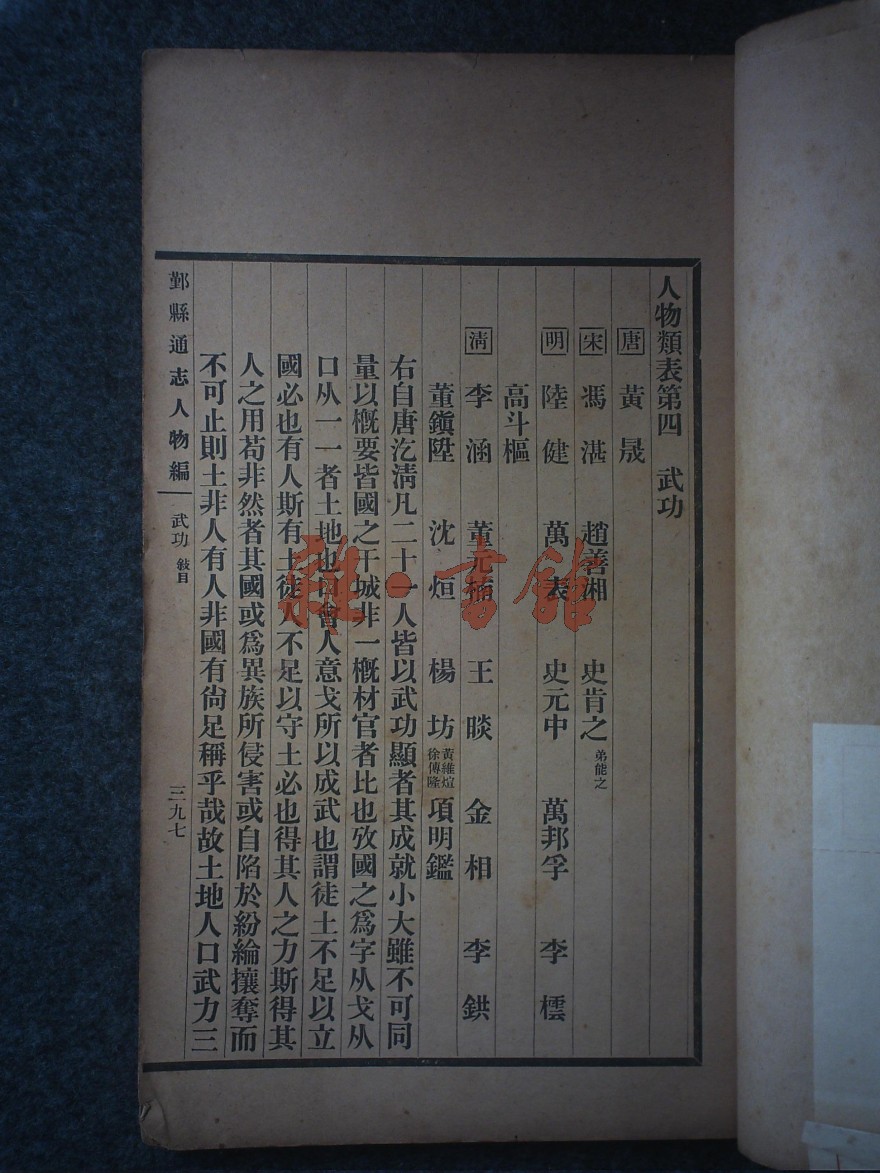 人物類表第四　武功
唐　黃晟
宋　馮湛　趙善湘　史肯之　弟能之
明　陸健　萬表　史元中　萬邦孚　李橒
高斗樞
清　李涵　董元　王睒　金相　李鉷
董鎭陞　沈烜　楊坊　黃維煊　徐傳隆　項明鑑
右自唐汔淸凡二十一人皆以武功顯者其成就小大雖不可同
量以槪要皆國之干城非一槪材官者比也攷國之爲字从戈从
口从一一者土地也口會人意戈所以成武也謂徒土不足以立
國必也有人斯有土徒人不足以守土必也得其人之力斯得其
人之用苟非然者其國或爲異族所侵害或自陷於紛綸攘奪而
不可止則土非人有人非國有尙足稱乎哉故土地人口武力三
鄞縣通志人物編　武功　敍目
三九七
雜·書館